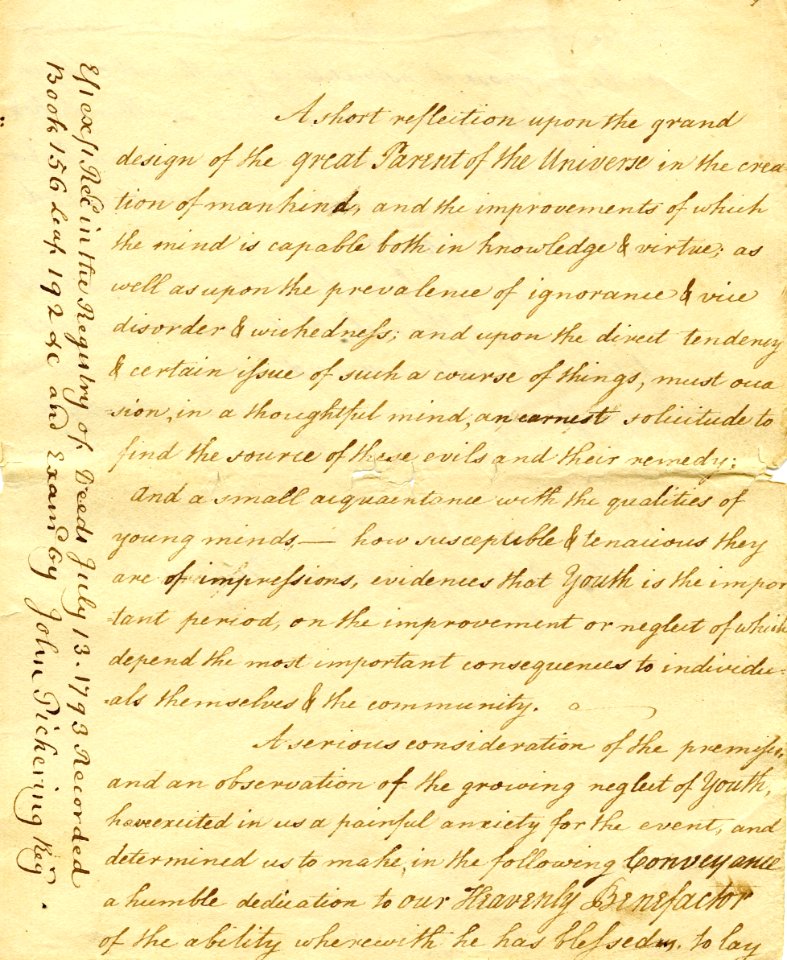 A short reflection upon the grand
design of the great Parent of the Universe in the crea-
tion of mankind, and the improvements of which
the mind is capable both in knowledge & virtue; as
well as upon the prevalence of ignorance & vice
disorder & wickedneſs; and upon the direct tendency
& certain iſsue of such a course of things, must occa
sion, in a thoughtful mind, an earnest solicitude to
find the source of these evils and their remedy:
And a small acquaentance with the qualities of
young minds,— how susceptible & tenacious they
are of impreſsions, evidences that Youth is the impor
tant period, on the improvement or neglect of which
depend the most important consequences to individu-
als themselves & the community.
A serious consideration of the premiſes,
and an observation of the growing neglect of Youth,
have excited in us a painful anxiety for the event, and
determined us to make, in the following Conveyance
a humble dedication to our Heavenly Benefactor
of the ability wherewith he has bleſsed us. to lay
Eſsex ſs. Recd. in the Registry of Deeds July 13. 1793 Recorded
Book 156 leaf 192 &c and Examd by John Pickering Regr.